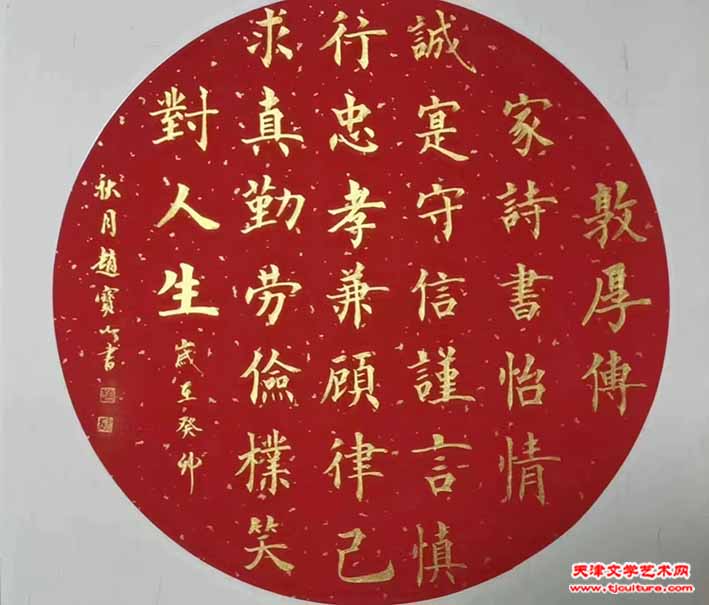 敦厚傳
家詩書怡情
誠寔守信謹言慎
行忠孝兼顧律己
求真勤劳儉樸笑
對人生
歲在癸卯
秋月趙寶山書
天津文学艺术网
www.tjculture.com